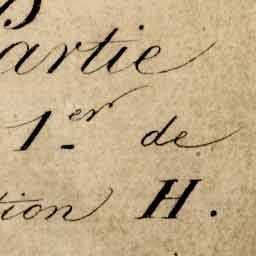 artie
1.er de
tion H.